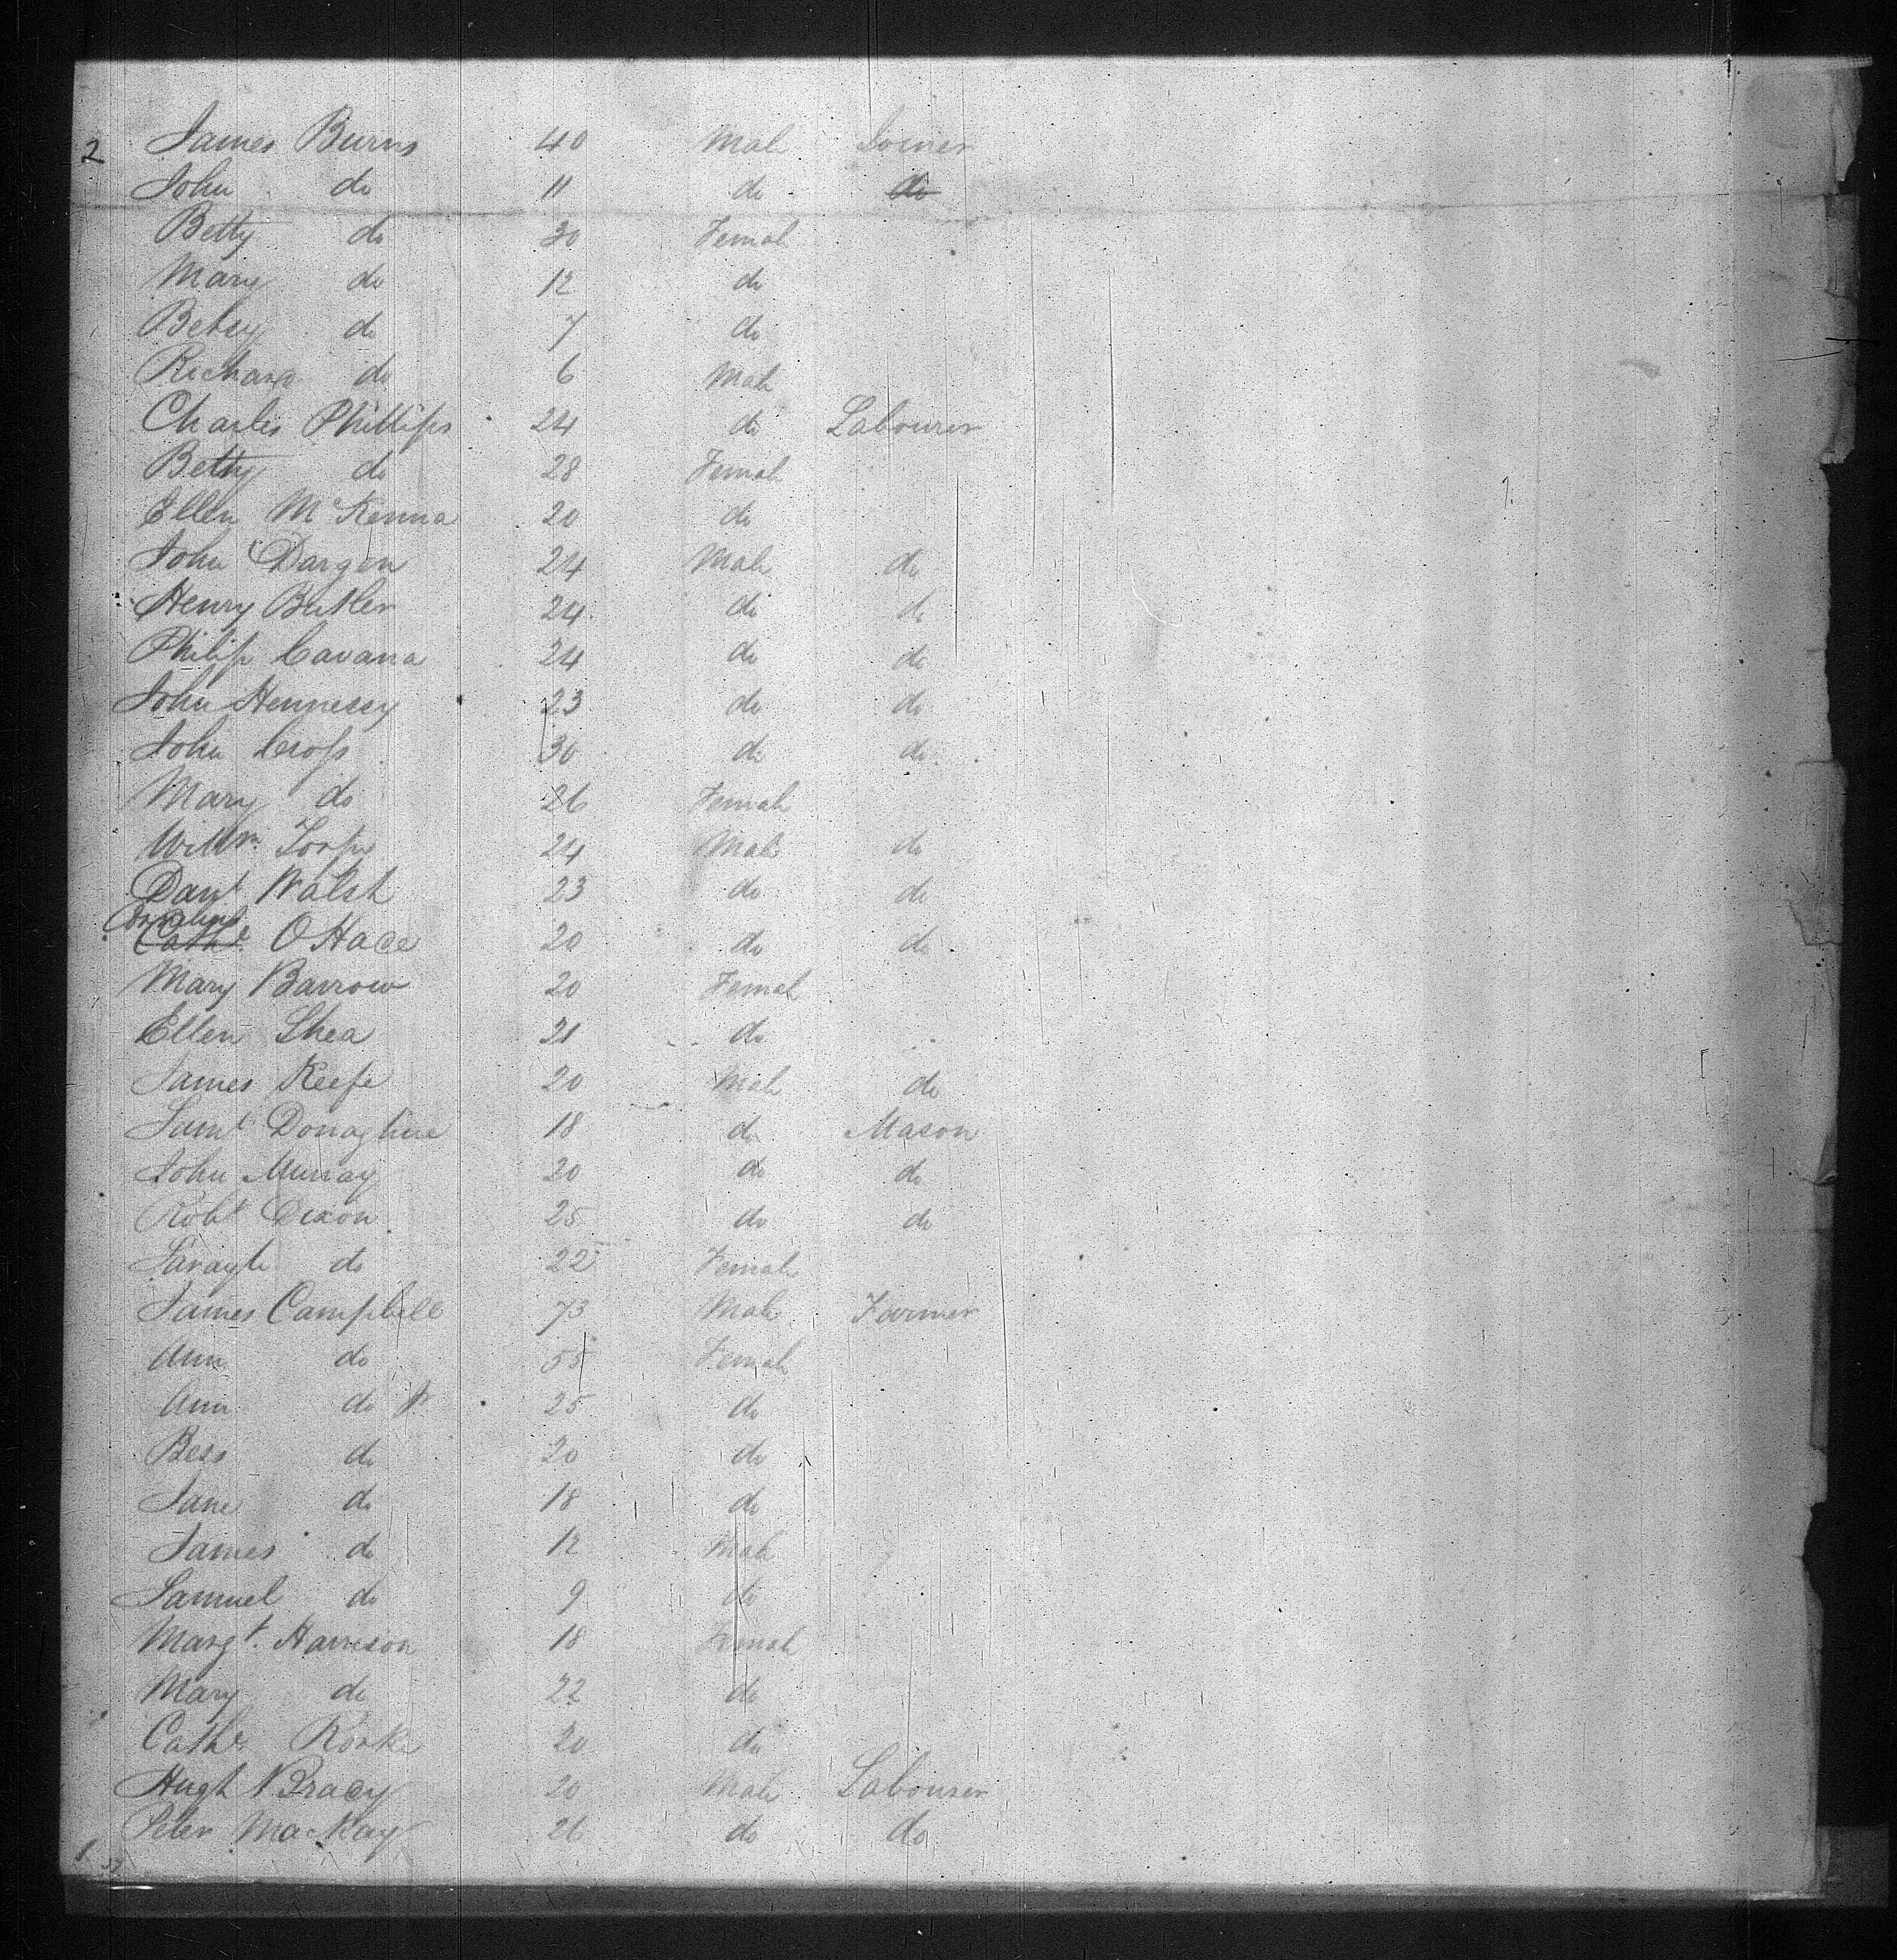 2 James Burns 40 Male Joiner
John do 11 do do
Betty do 30 Female
Mary do 12 do
Betsy do 7 do
Richard do 6 Male
Charles Phillips 24 do Labourer
Betty do 28 Female
Ellen McKenna 20 do
John Dargen 24 Male do
Henry Butler 24 do do
Philip Cavana 24 do do
John Hennessy 23 do do
John Cross 30 do do
Mary do 26 Female
Willm. Torpe 24 Male do
Danl Walsh 23 do do
Cornelius
Cathe OHace 20 do do
Mary Barrow 20 Female
Ellen Shea 21 do
James Keefe 20 Male do
Saml Donaghue 18 do Mason
John Murray 20 do do
Robt Dixon 25 do do
do 22 Female
James Campbell 73 Male Farmer
Ann do 55 Female
Ann do Jr 25 do
Bess do 20 do
Jane do 18 do
James do 12 Male
Samuel do 9 do
Margt. Harrison 18 Female
Mary do 22 do
Cathe Rorke 20 do
Hugh Bracy 20 Male Labourer
Peter MacKay 26 do do
37